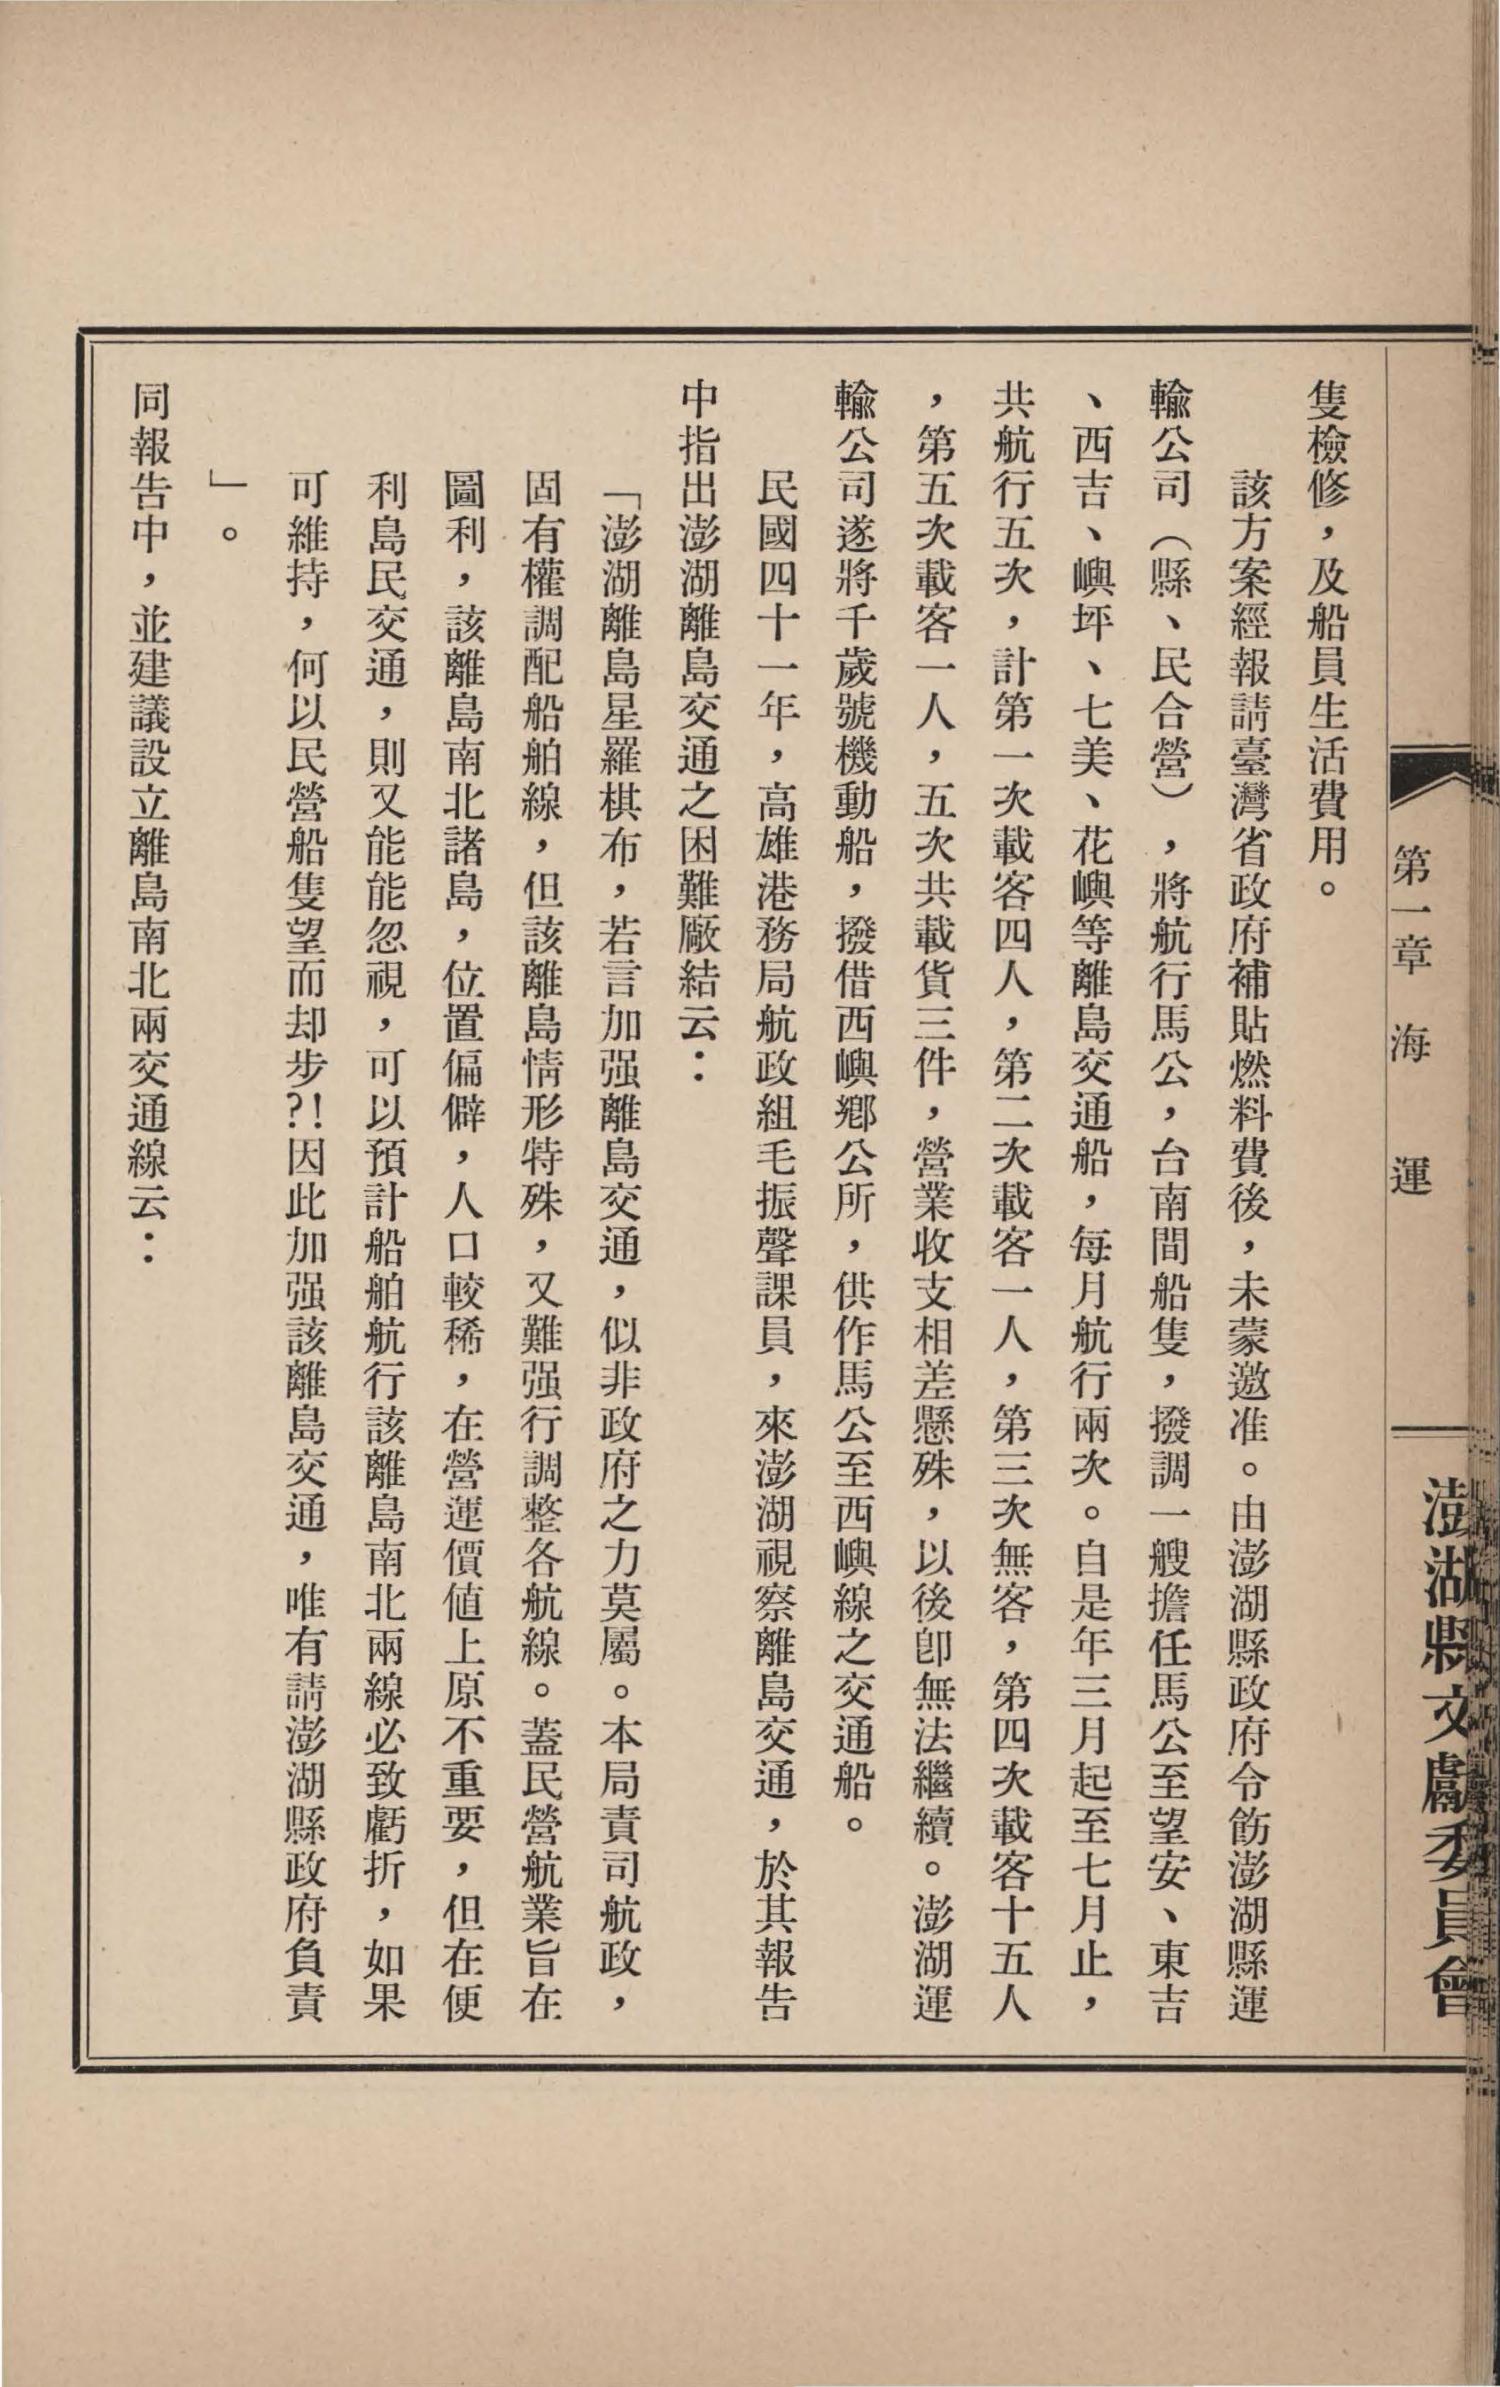 第一章　海　運
澎湖縣文獻委員會
隻檢修，及船員生活費用。
該方案經報請臺灣省政府補貼燃料費後，未蒙邀准。由澎湖縣政府令飭澎湖縣運
輸公司（縣、民合營），將航行馬公，台南間船隻，撥調一艘擔任馬公至望安、東吉
、西吉、嶼坪、七美、花嶼等離島交通船，每月航行兩次。自是年三月起至七月止，
共航行五次，計第一次載客四人，第二次載客一人，第三次無客，第四次載客十五人
，第五次載客一人，五次共載貨三件，營業收支相差懸殊，以後卽無法繼續。澎湖運
輸公司遂將千歲號機動船，撥借西嶼鄉公所，供作馬公至西嶼線之交通船。
民國四十一年，高雄港務局航政組毛振聲課員，來澎湖視察離島交通，於其報告
中指出澎湖離島交通之困難廠結云：
「澎湖離島星羅棋布，若言加强離島交通，似非政府之力莫屬。本局責司航政，
固有權調配船舶線，但該離島情形特殊，又難强行調整各航線。蓋民營航業旨在
圖利，該離島南北諸島，位置偏僻，人口較稀，在營運價值上原不重要，但在便
利島民交通，則又能能忽視，可以預計船舶航行該離島南北兩線必致虧折，如果
可維持，何以民營船隻望而却步?!因此加强該離島交通，唯有請澎湖縣政府負責
」。
同報告中，並建議設立離島南北兩交通線云：